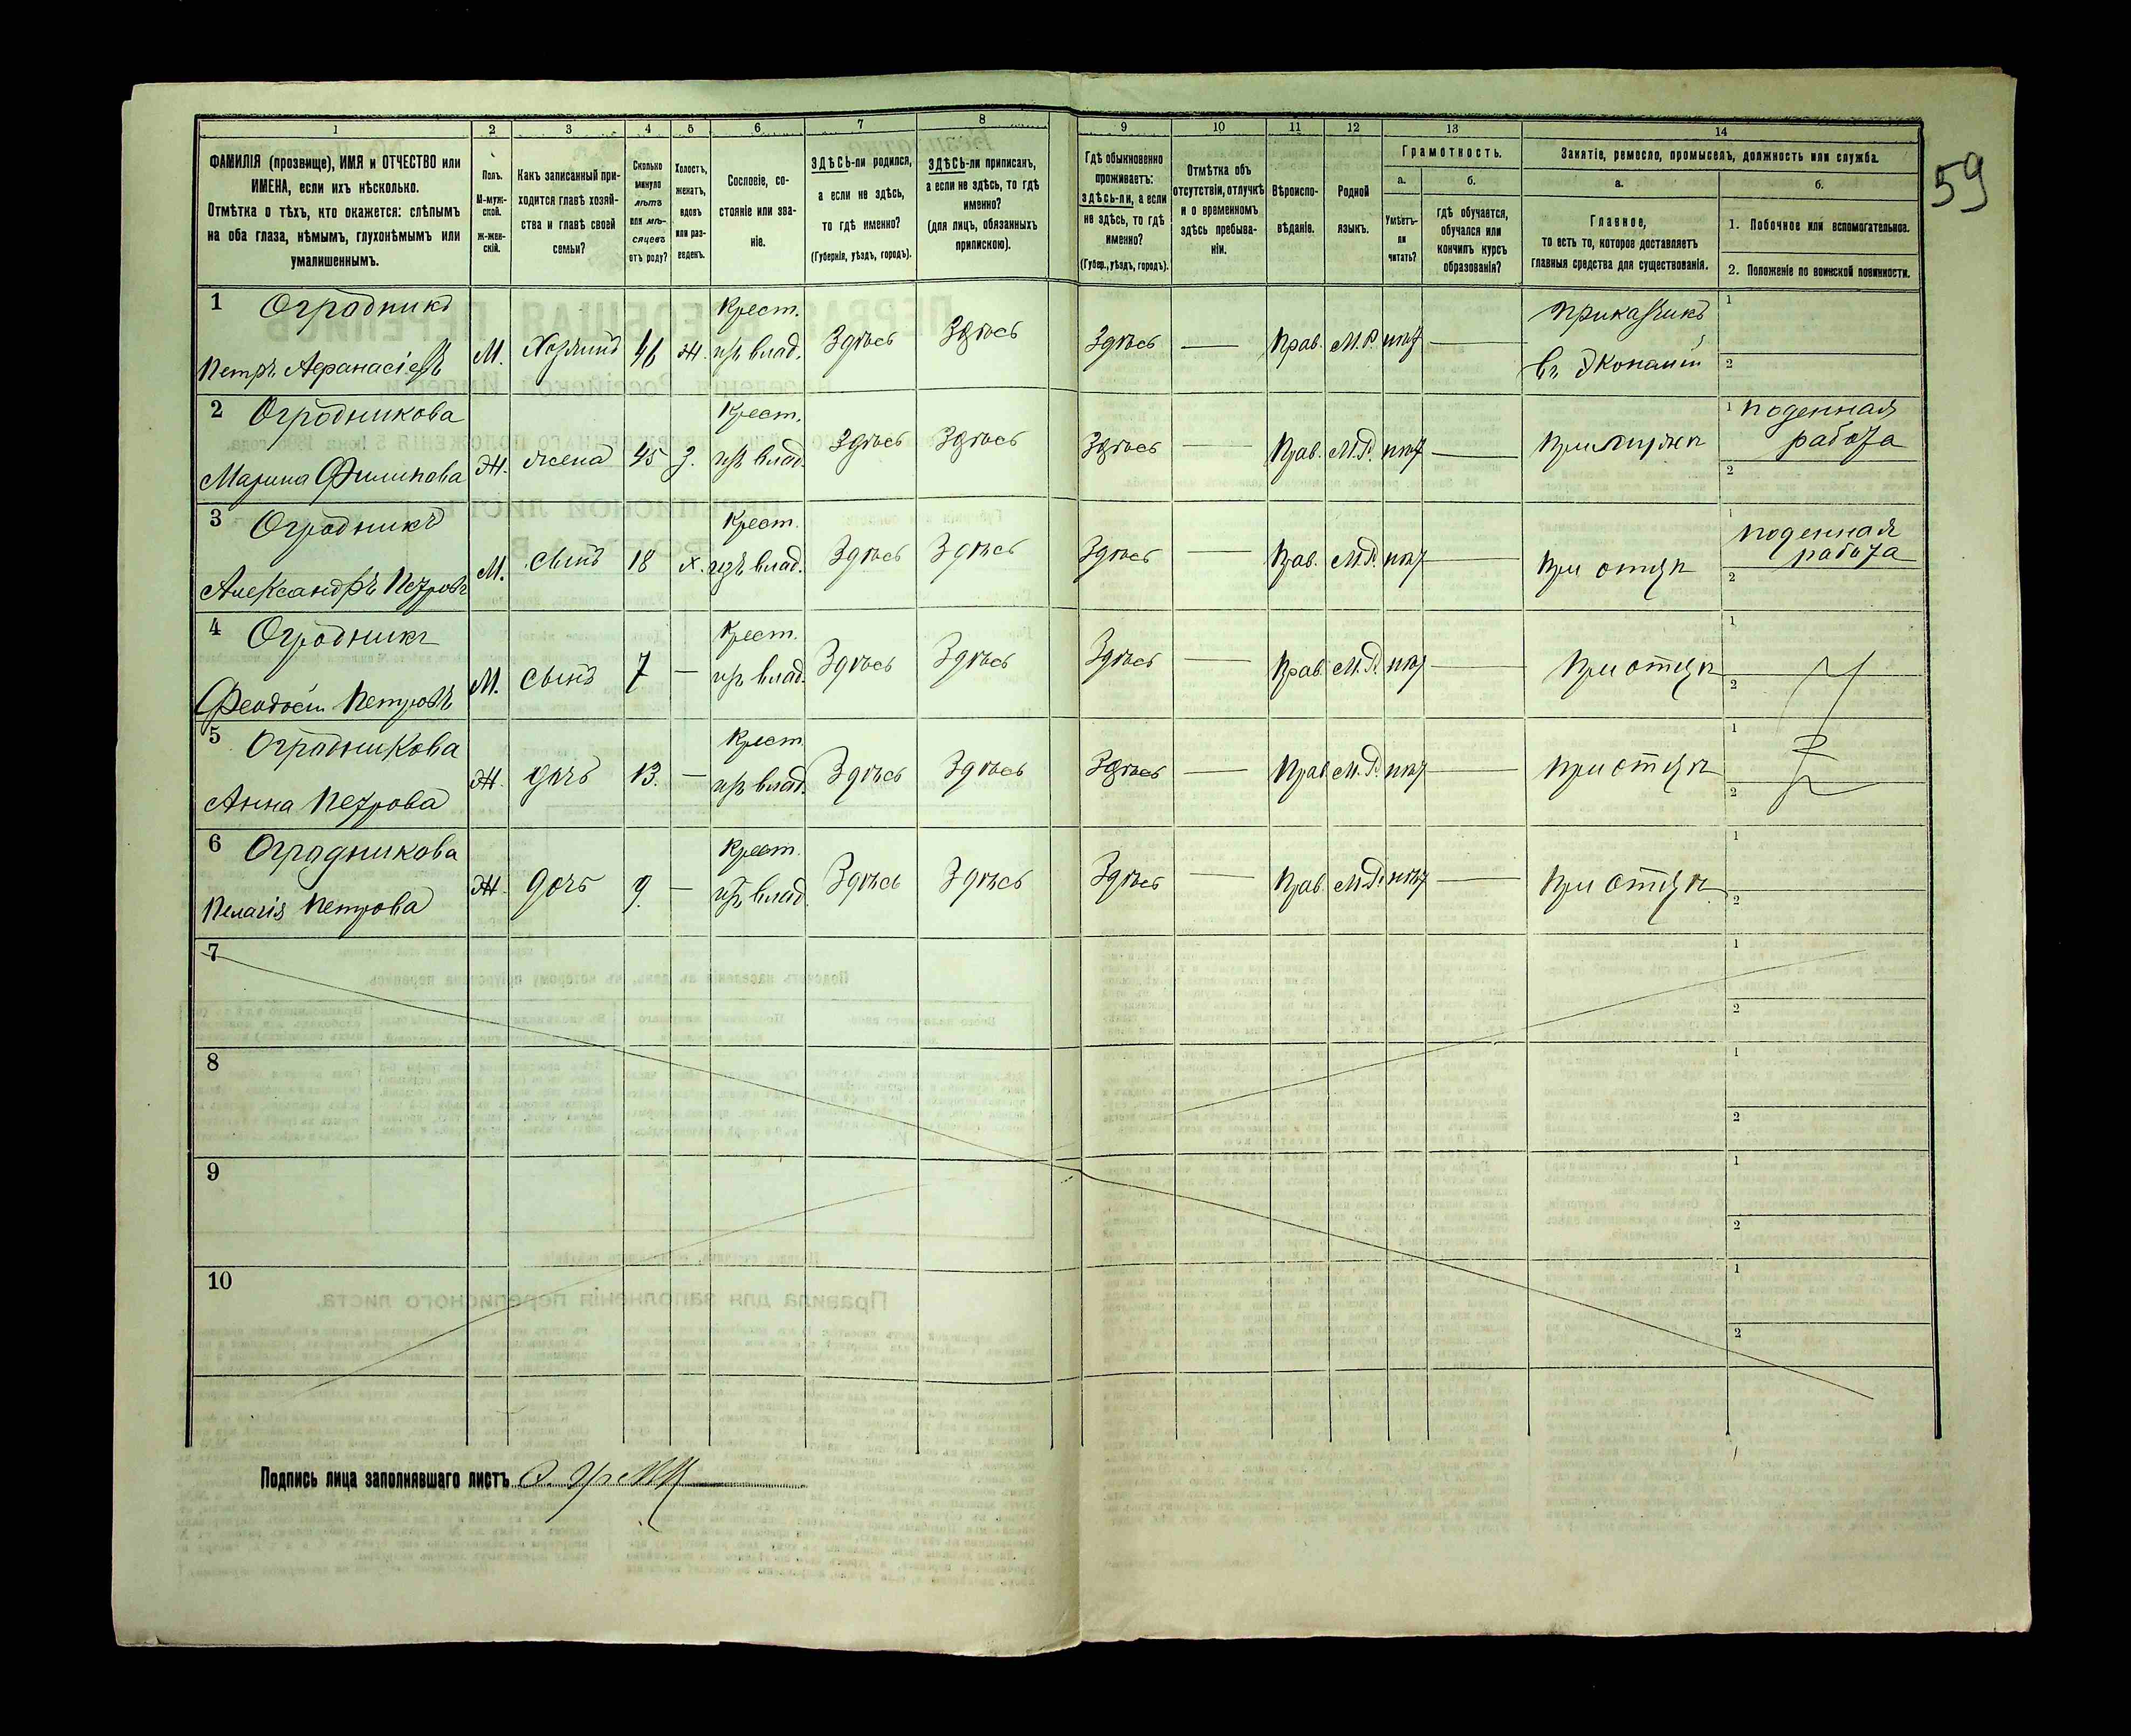 59
1 2 3 4 5 6 7 8 9 10 11 12 13 14
ФАМИЛІЯ (прозвище), ИМЯ и ОТЧЕСТВО или
ИМЕНА, если ихъ нѣсколько.
Отмѣтка о тѣхъ, кто окажется: слѣпымъ
на оба глаза, нѣмымъ, глухонѣмымъ или
умалишеннымъ.
Полъ.
М-муж-
ской.
Ж-жен-
скій.
Какъ записанный при-
ходится главѣ хозяй-
ства и главѣ своей
семьи?
Сколько
минуло
лѣтъ
или мѣ-
сяцевъ
отъ роду?
Холостъ,
женатъ,
вдовъ
или раз-
веденъ.
Сословіе, со-
стояніе или зва-
ніе.
ЗДѢСЬ-ли родился,
а если не здѣсь,
то гдѣ именно?
(Губернія, уѣздъ, городъ).
ЗДѢСЬ-ли приписанъ,
а если не здѣсь, то гдѣ
именно?
(для лицъ, обязанныхъ
припискою).
Гдѣ обыкновенно
проживаетъ:
здѣсь-ли, а если
не здѣсь, то гдѣ
именно?
(Губер., уѣздъ, городъ).
Отмѣтка объ
отсутствіи, отлучкѣ
и о временномъ
здѣсь пребыва-
ніи.
Вѣроиспо-
вѣданіе.
Родной
языкъ.
Грамотность.
а.
Умѣетъ-
ли
читать?
б.
гдѣ обучается,
обучался или
кончилъ курсъ
образованія?
Занятіе, ремесло, промыселъ, должность или служба.
а.
Главное,
то есть то, которое доставляетъ
главныя средства для существованія.
б.
1. Побочное или вспомогательное.
2. Положеніе по воинской повинности.
1 Огродникъ Крест. Прикащикъ 1
Петръ Афанасіевъ М. Хозяинъ 46 Ж. изъ влад. Здѣсь Здѣсь Здѣсь — Прав. М.Р. нѣт — въ Экономіи 2
2 Огродникова Крест. 1 поденная
Марина Филипова Ж. жена 45 З. изъ влад. Здѣсь Здѣсь Здѣсь — Прав. М.Р. нѣт — При мужѣ работа
2
3 Огродникъ Крест. 1 поденная
Александръ Петровъ М. сынъ 18 х. изъ влад. Здѣсь Здѣсь Здѣсь — Прав. М.Р. нѣт — При отцѣ работа
2
4 Огродникъ Крест. 1
Феодосій Петровъ М. сынъ 7 — изъ влад. Здѣсь Здѣсь Здѣсь — Прав. М.Р. нѣт — При отцѣ 2
5 Огродникова Крест. 1
Анна Петрова Ж. дочь 13. — изъ влад. Здѣсь Здѣсь Здѣсь — Прав. М.Р. нѣт — При отцѣ 2
6 Огродникова Крест. 1
Пелагія Петрова Ж. дочь 9. — изъ влад. Здѣсь Здѣсь Здѣсь — Прав. М.Р. нѣт — При отцѣ 2
7 1
2
8 1
2
9 1
2
10 1
2
Подпись лица заполнявшаго листъ